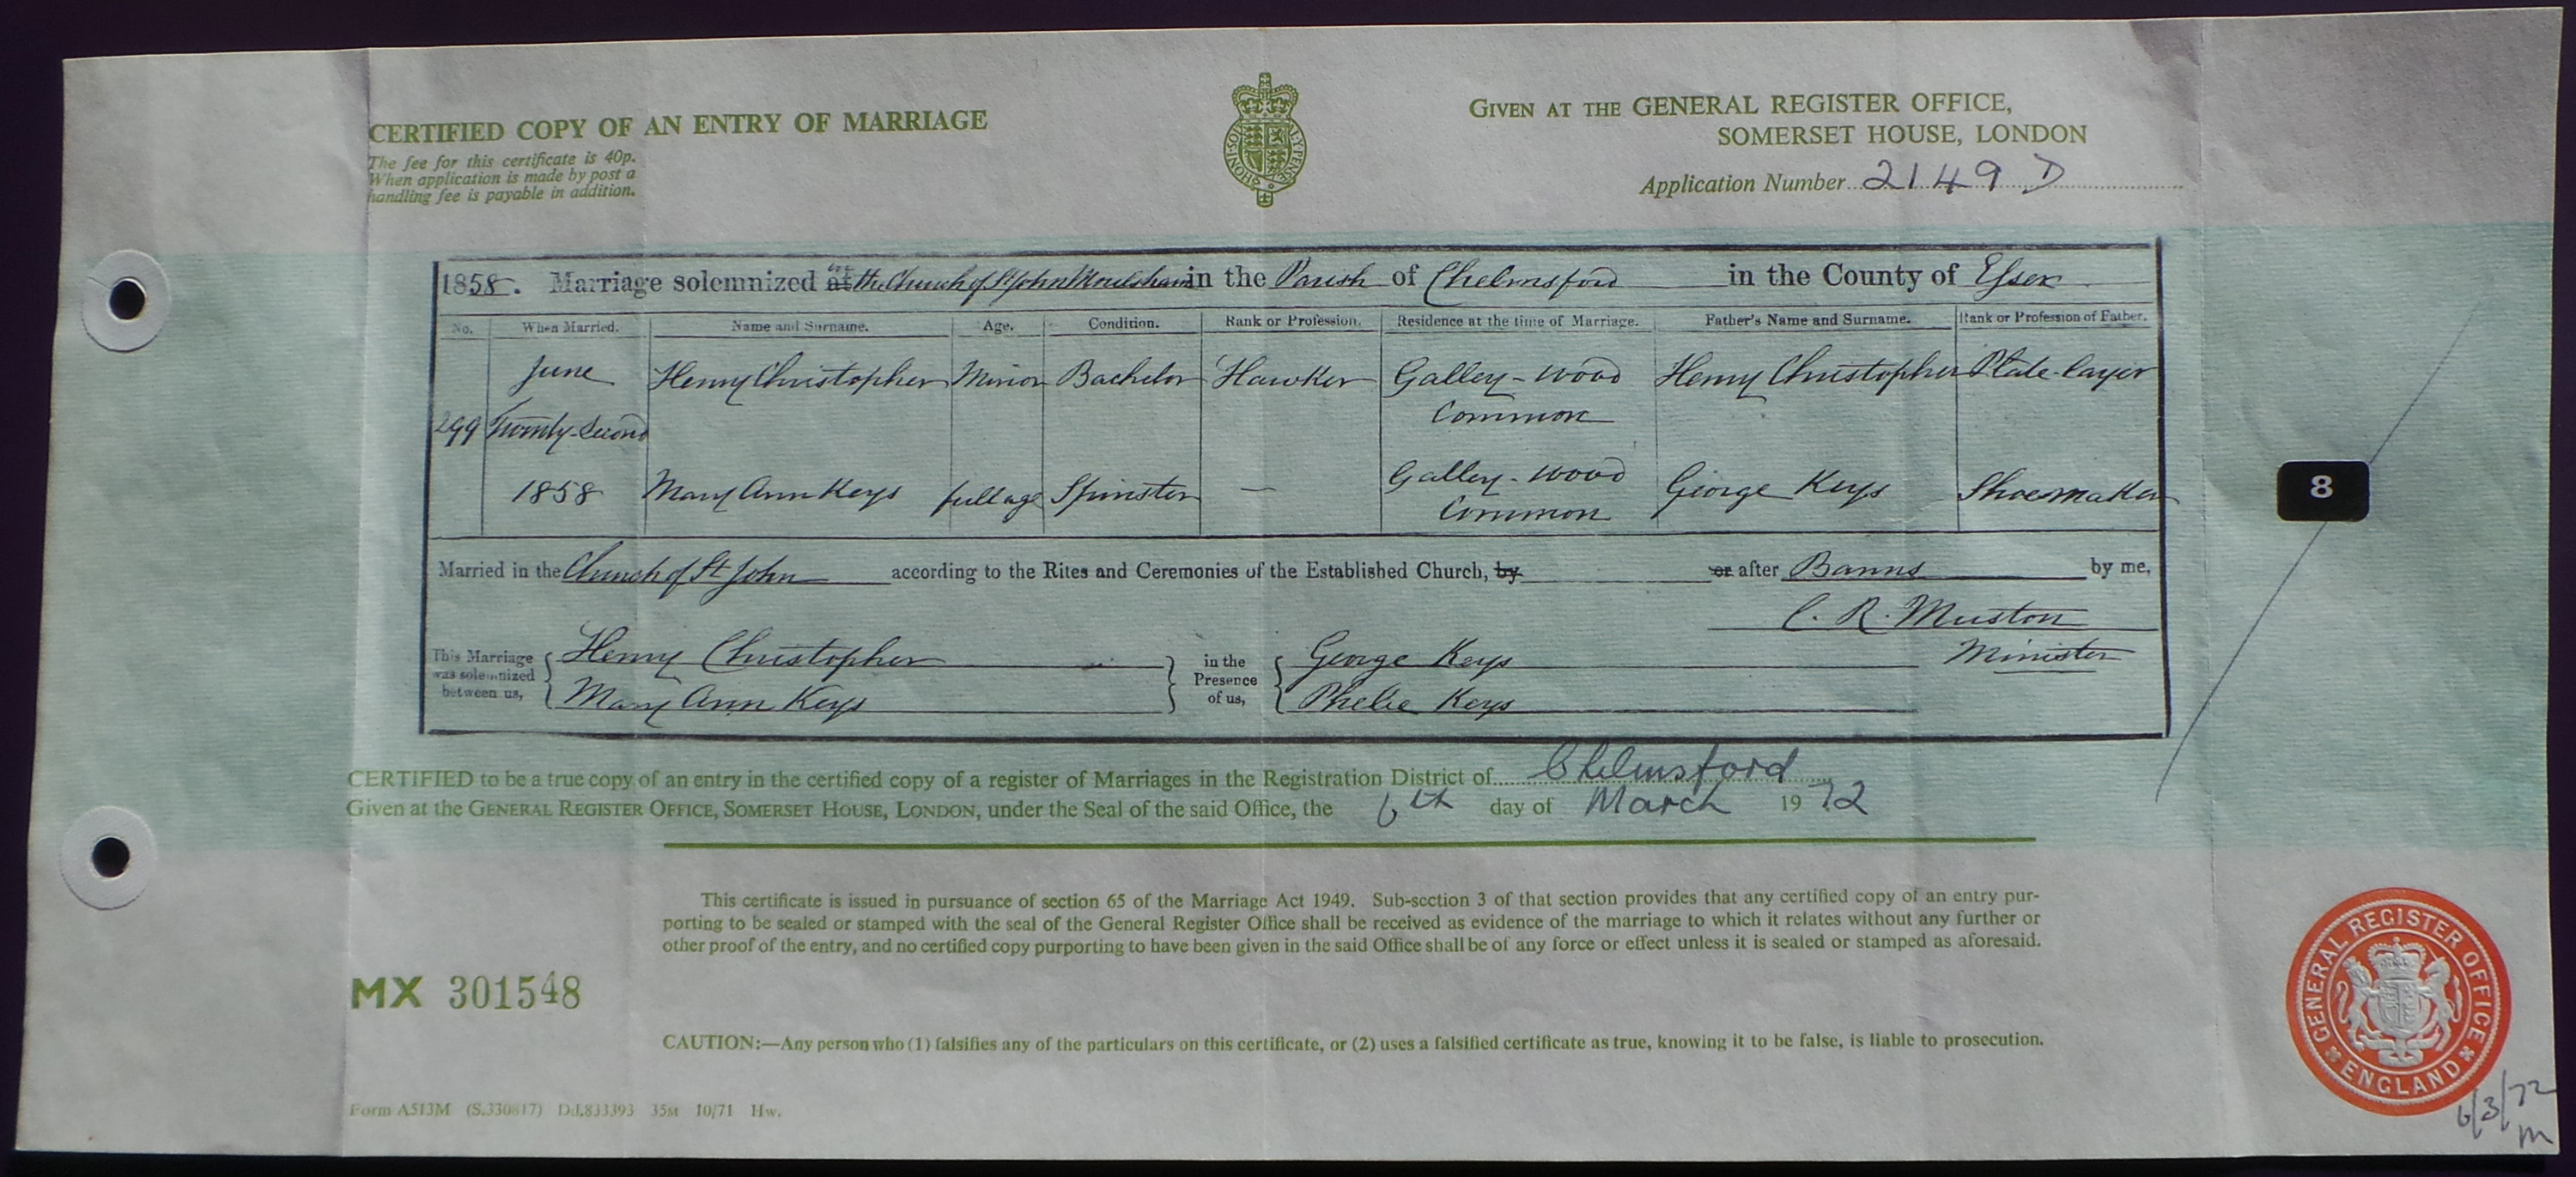 CERTIFIED COPY OF AN ENTRY OF MARRIAGE
The fee for this certificate is 40p.
When application is made by post a
handling fee is payable in addition.
GIVEN AT THE GENERAL REGISTER OFFICE,
SOMERSET HOUSE, LONDON
Application Number 2149 D
1858. Marriage solemnized at in the Church of St John Moulsham in the Parish of Chelmsford in the County of Essex
No. When Married. Name and Surname. Age. Condition. Rank or Profession. Residence at the time of Marriage. Father's Name and Surname. Rank or Profession of Father.
June Henry Christopher Minor Bachelor Hawker Galley-wood Henry Christopher Plate-layer
Common
299 Twenty-Second
1858 Mary Ann Keys full age Spinster — Galley-wood George Keys Shoemaker
Common
Married in the Church of St John according to the Rites and Ceremonies of the Established Church, by or after Banns by me,
C. R. Muston
Minister
This Marriage
was solemnized
between us,
Henry Christopher
Mary Ann Keys
in the
Presence
of us,
George Keys
Phebe Keys
8
CERTIFIED to be a true copy of an entry in the certified copy of a register of Marriages in the Registration District of Chelmsford
Given at the GENERAL REGISTER OFFICE, SOMERSET HOUSE, LONDON, under the Seal of the said Office, the 6th day of March 1972
This certificate is issued in pursuance of section 65 of the Marriage Act 1949. Sub-section 3 of that section provides that any certified copy of an entry pur-
porting to be sealed or stamped with the seal of the General Register Office shall be received as evidence of the marriage to which it relates without any further or
other proof of the entry, and no certified copy purporting to have been given in the said Office shall be of any force or effect unless it is sealed or stamped as aforesaid.
MX 301548
CAUTION:—Any person who (1) falsifies any of the particulars on this certificate, or (2) uses a falsified certificate as true, knowing it to be false, is liable to prosecution.
Form A513M (S.330817) Dd.833393 35M 10/71 Hw.
GENERAL REGISTER OFFICE
ENGLAND
6/3/72
m